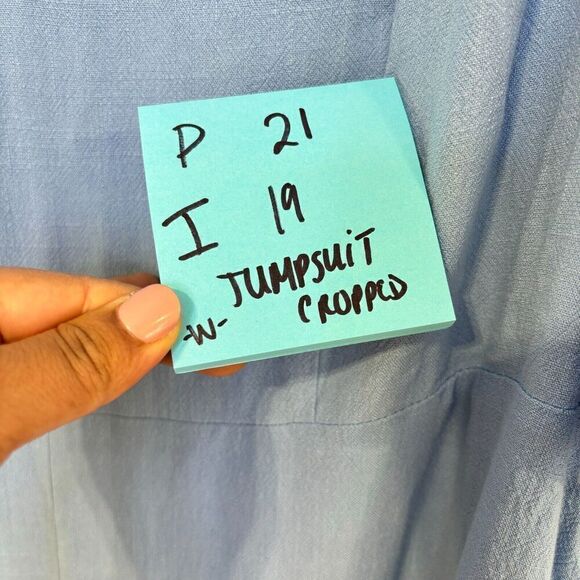 P 21
I 19
JUMPSUIT
-W- CROPPED